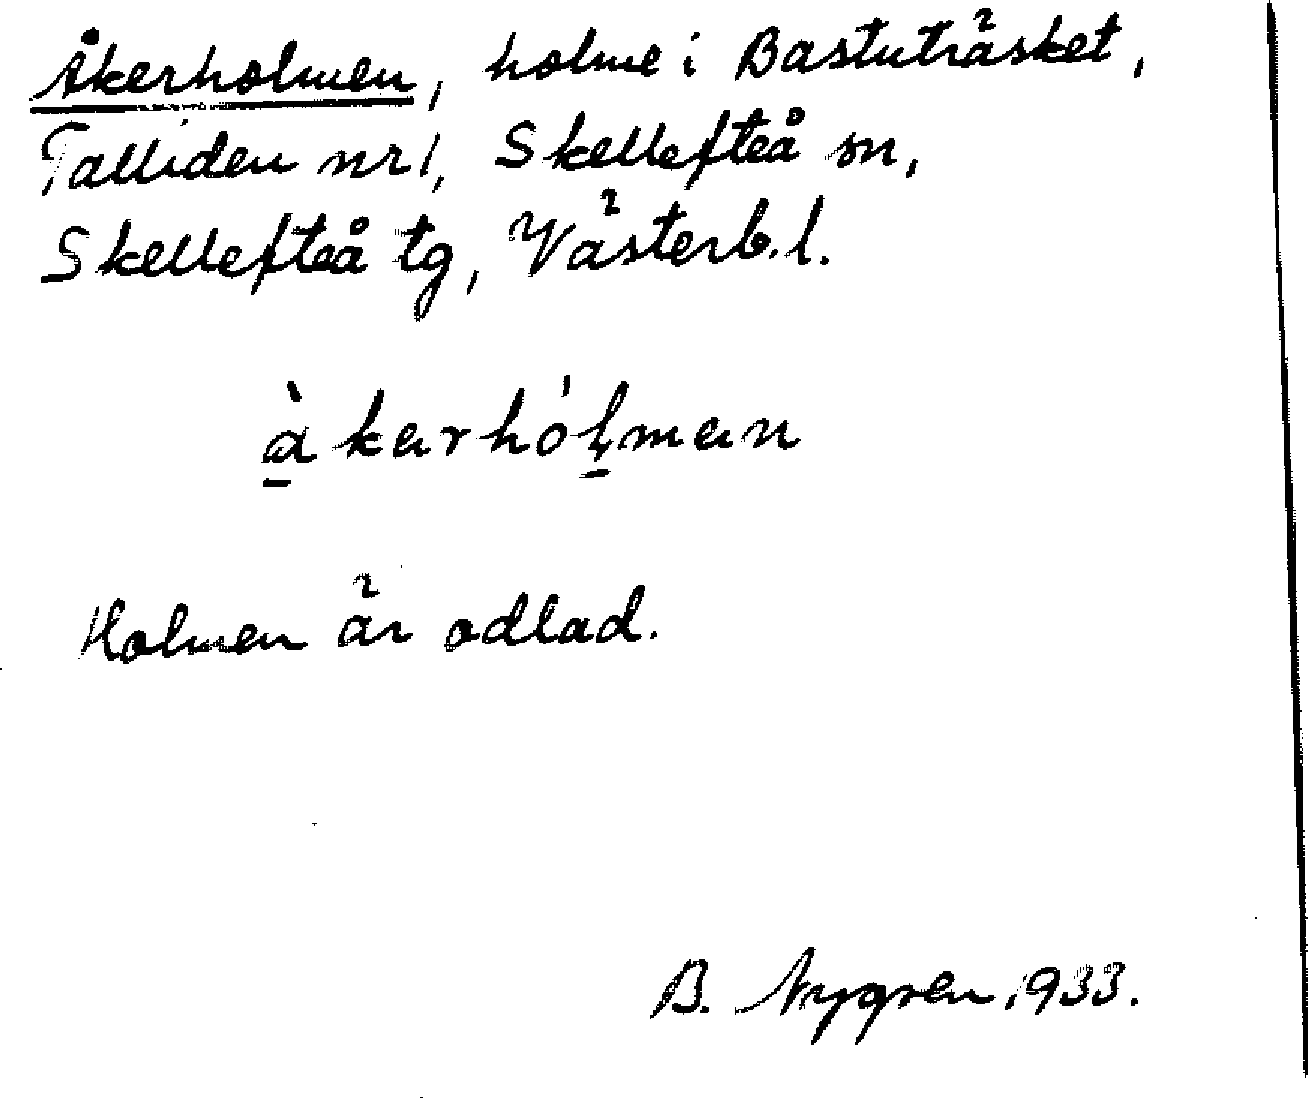 Åkerholmen, holme i Bastuträsket,
Talliden nr 1, Skellefteå sn,
Skellefteå tg, Västerb.l.
à̠kerhól̠men
Holmen är odlad.
B. Nygren 1933.